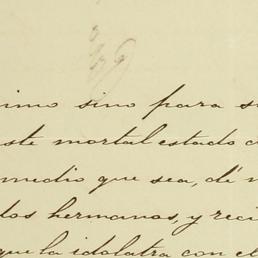 imo sino para s
ste mortal estado
medio que sea, dé
dos hermanos, y reci
que la idolatra con el